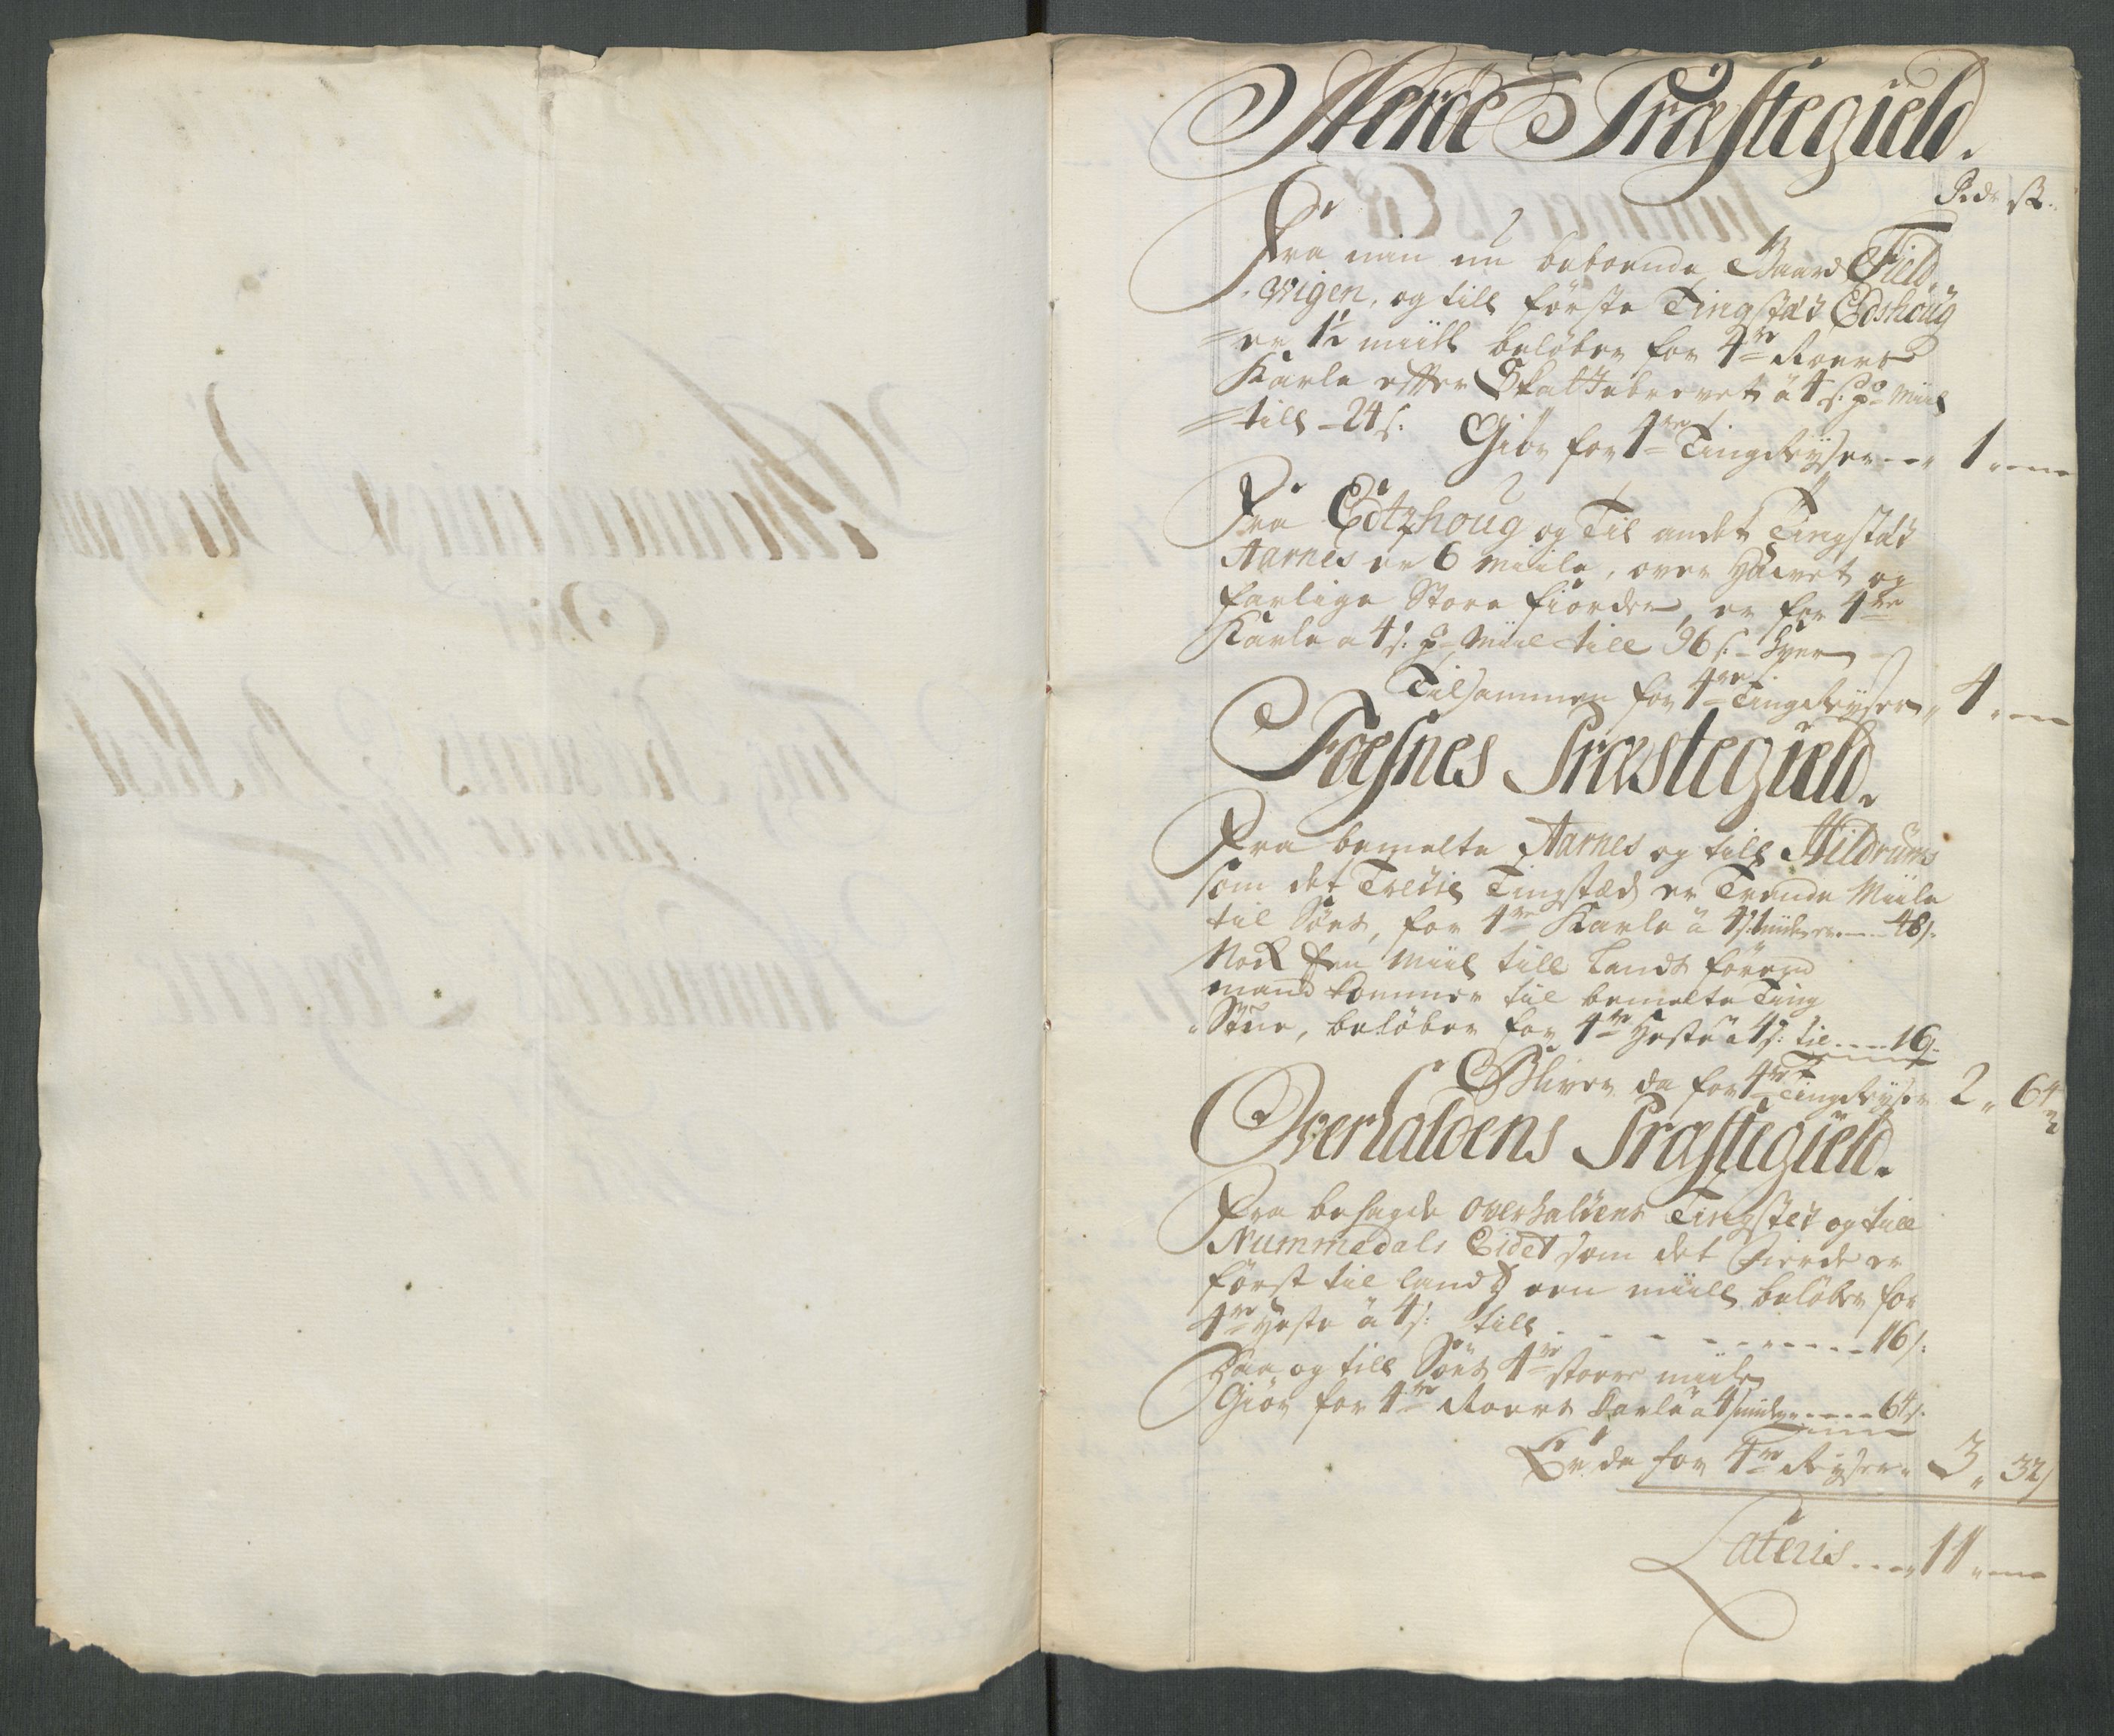 Nerøe Præstegield.
Rdr sk.
Fra min nu beboende Gaard Field
wigen, og till første Tingstæd Edshoug
er 1½ miill beløber for 4re Roers
Karle efter Skattebrevet á 4 s: pr Miil
till - 24 s:
Giør for 4re Tingreyser - - 1 - - -
Fra Edtzhoug og Til andet Tingstæd
Aarnes er 6 Miile, over Havet og
farlige Store fiorder, er for 4re
Karle a 4 s: pr Miil till 96 s: hver
Tilsammen for 4re Tingreyser 4 - - -
Foesnes Præstegield.
Fra bemelte Aarnes og till Hildrums
som det Tredie Tingstæd er Trende Miile
til Søes, for 4re Karle á 4 s: Miilen er - - 48 s:
Nock Een Miil till Lands førend
mand kommer til bemelte Ting
Stue, beløber for 4re Heste á 4 s: til - - - 16 s:
Bliver da for 4re Tingreyser 2 " 64
Overhaldens Præstegield.
Fra besagde Overhaldens Tingsted og till
Nummedals Eidet som det fierde er
først til lands een miill beløber for
4re Heste á 4 s: till - - - - - - - - 16 s:
Saa og till Søes 4re stoere miile
Giør for 4re Roers Karle á 4 s miilen - - - - 64 s:
Er da for 4re Reyser " 3 " 32
Lateris - - - 11 - - -